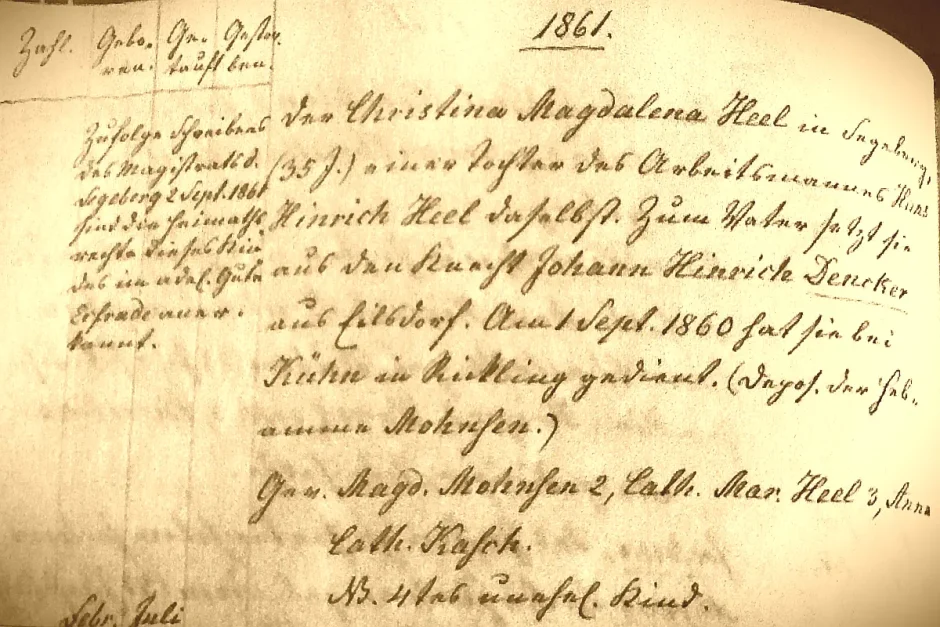 1861.
Zahl. Gebo- Ge- Gestor-
ren. tauft ben.
Zufolge Schreibens
des Magistrats d.
Segeberg 2 Sept. 1861
sind die Heimaths-
rechte dieses Kin-
des im adel. Gute
aner-
kannt.
der Christina Magdalena Heel in Segeberg,
(35 J.) einer Tochter des Arbeitsmannes Hans
Hinrich Heel daselbst. Zum Vater setzt sie
aus den Knecht Johann Hinrich Dencker
aus Eilsdorf. Am 1 Sept. 1860 hat sie bei
Kühn in Rickling gedient. (Depos. der Heb-
amme Mohnsen.)
Gev. Magd. Mohnsen 2, Cath. Mar. Heel 3, Anna
Cath. Kasch.
NB. 4tes unehel. Kind.
Febr. Juli